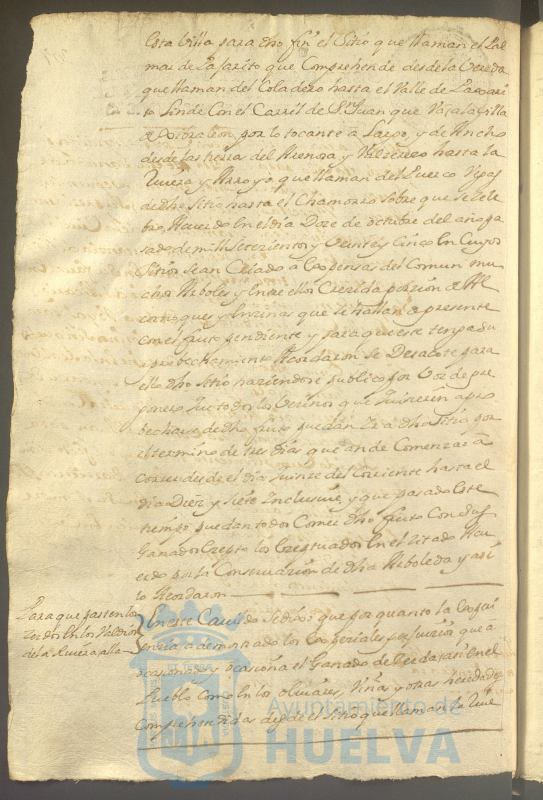 esta Villa para dho fin el sitio que llaman el Pal
mar de Lazarito que Comprehende desde la Vereda
que llaman del Coladero hasta el Valle de Lazari
to linde Con el Carril de Sn Juan que Va a la Villa
de Gibraleon por lo tocante a Largo, y de Ancho
desde las tierras del y hasta la
Rivera y Arroyo que llaman del Puerco
de dho sitio hasta el Chamorro sobre que se Cele
bro Acuerdo en el dia Doze de octubre del año pa
sado de mill setezientos y Veinte y Cinco en Cuyos
sitios sean Criado a Expensas del Comun mu
chos Arboles y entre ellos Crecida porzion de Al
cornoques y enzinas que se hallan de presente
con el fruto pendiente y para que este tenga su
aprobechamiento Acordaron se Desacote para
ello dho sitio haziendose publico por Voz de pre
gonero que todos los Vezinos que quisieren apro
becharse de dho fruto puedan Ir a dho sitio por
el termino de tres dias que an de Comenzar a
Correr desde el dia quinze del Corriente hasta el
dia Diez y siete Inclusive, y que pasado este
tiempo puedan todos Comer dho fruto Con sus
Ganados Exepto los Exeptuados en el Zitado Acu
erdo por la Conservazion de dha Arboleda y asi
lo Acordaron
Para que pasten los
Zerdos en los Valdios
de la Rivera alla
En este Cavildo se dixo que por quanto la Expe
riencia a demostrado los Espeziales perjuizios que a
ocasionado y ocasiona el Ganado de Cerda asi en el
Pueblo Como en los olivares, Viñas y otras heredades
Comprehendidas desde el sitio que llaman la Rive
Ayuntamiento de
HUELVA